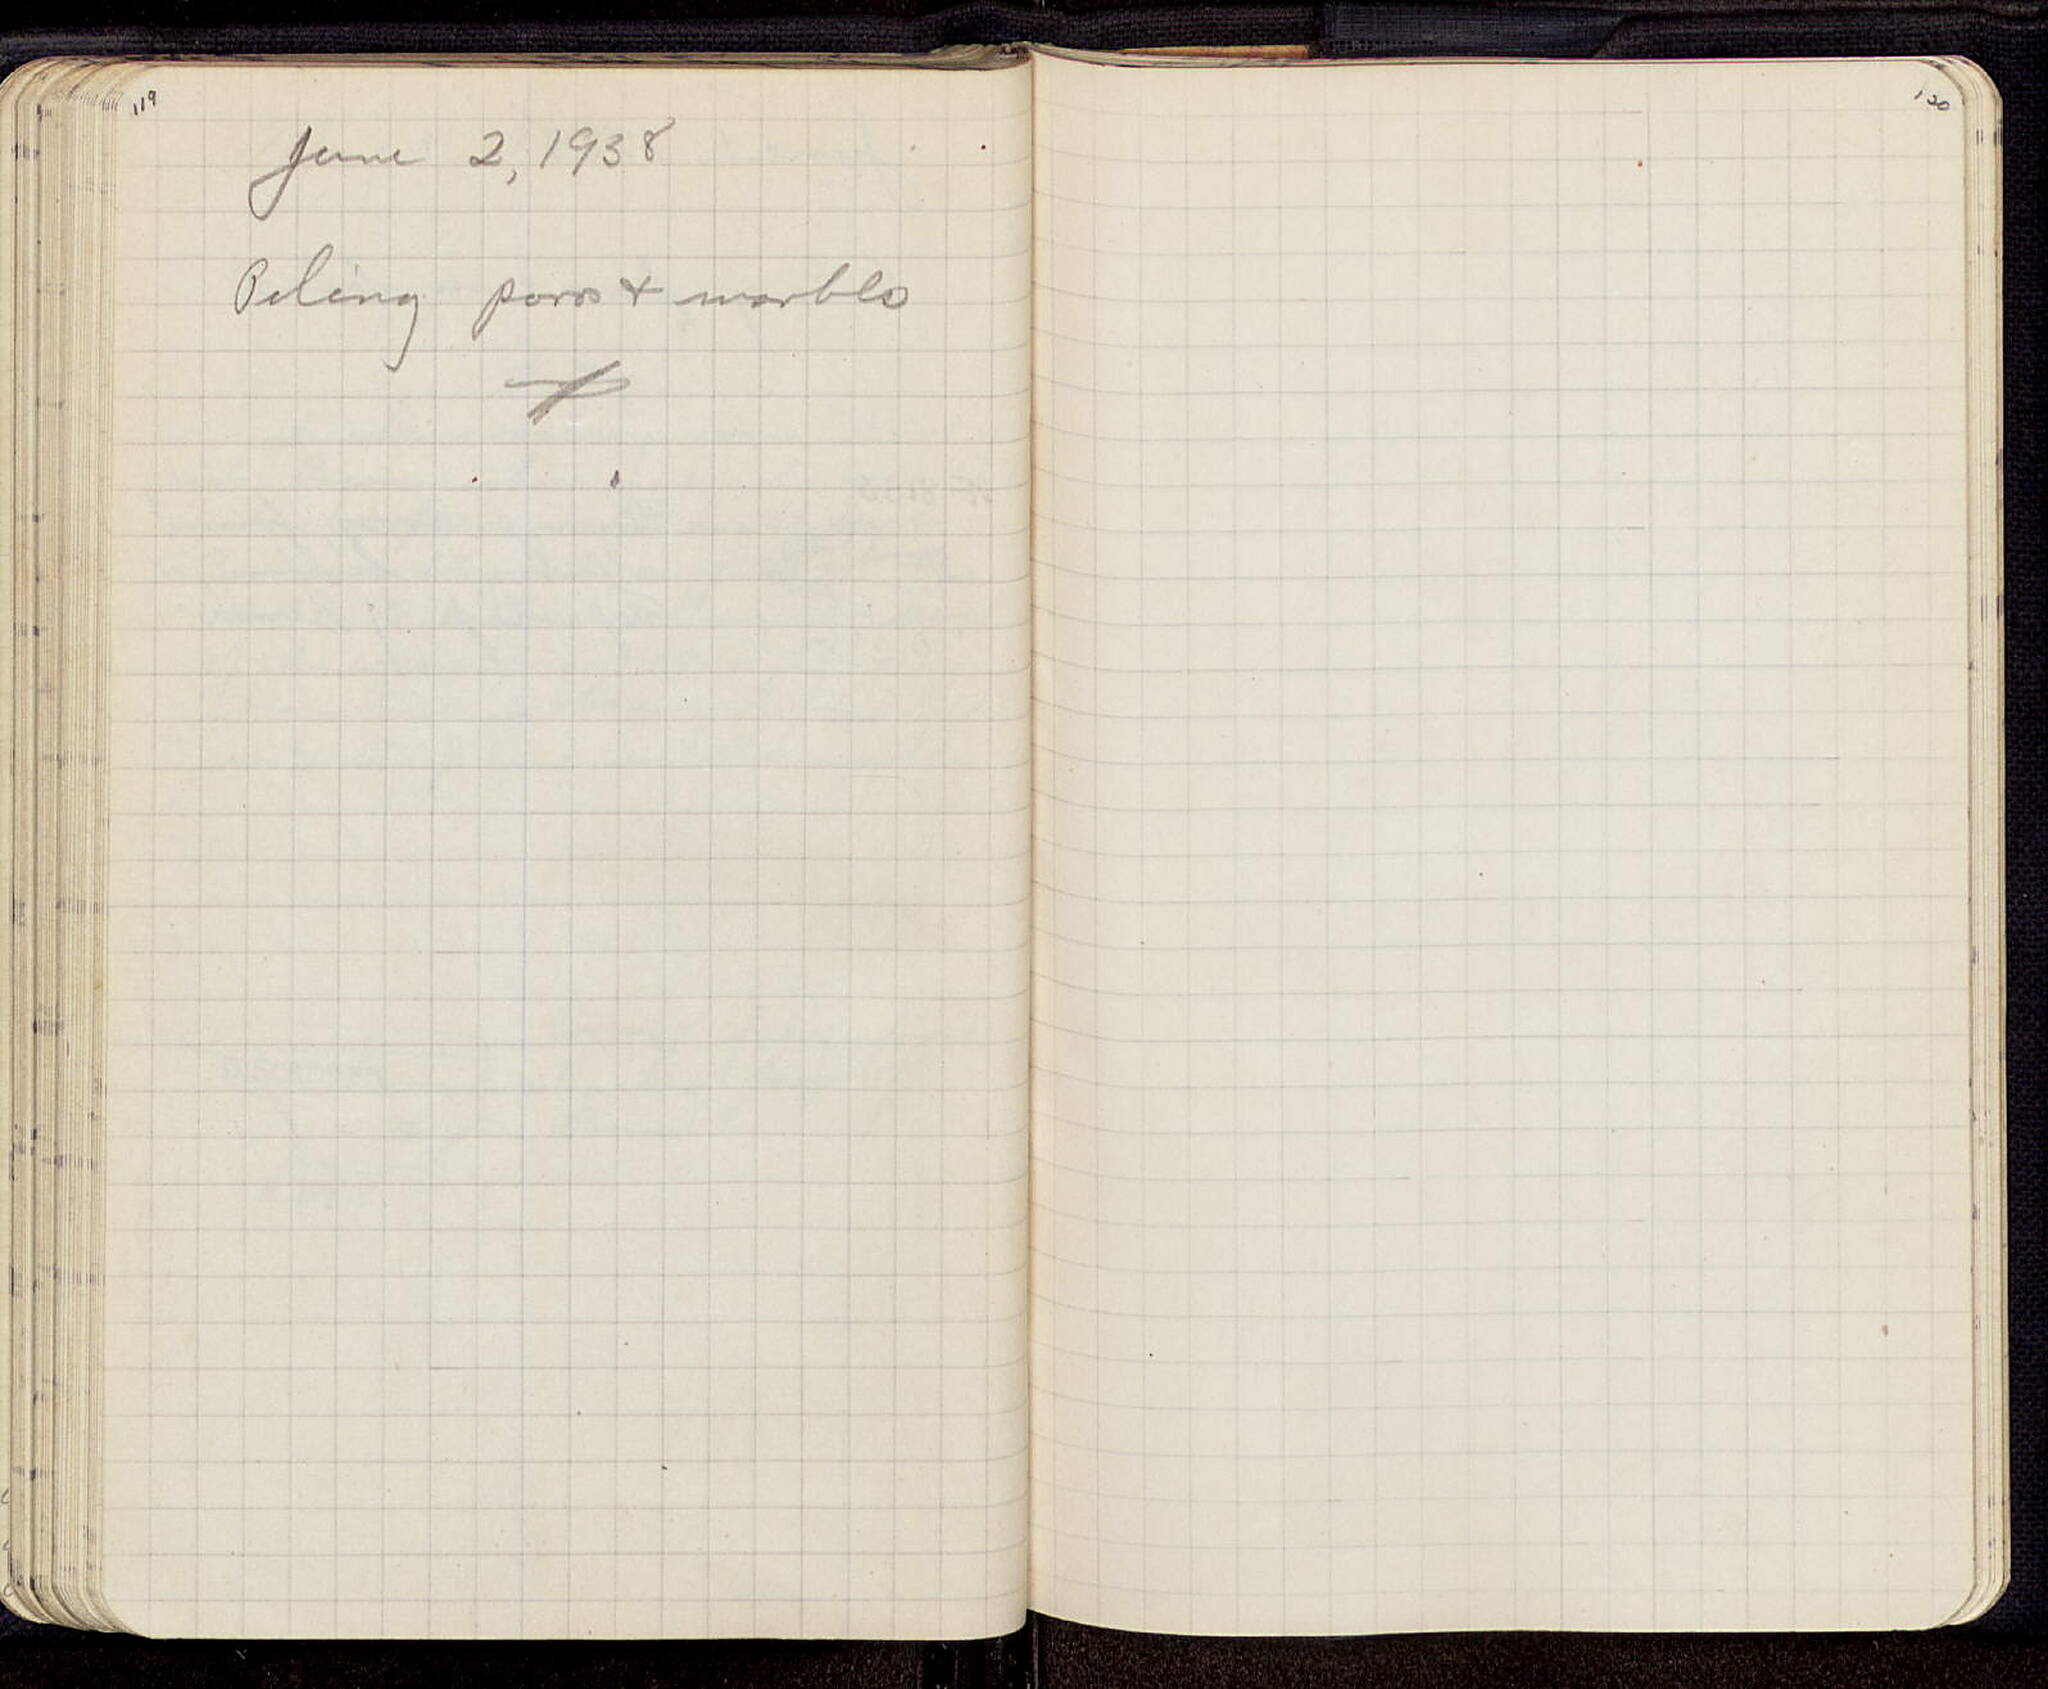 119
June 2, 1938
Piling poros + marbles
120